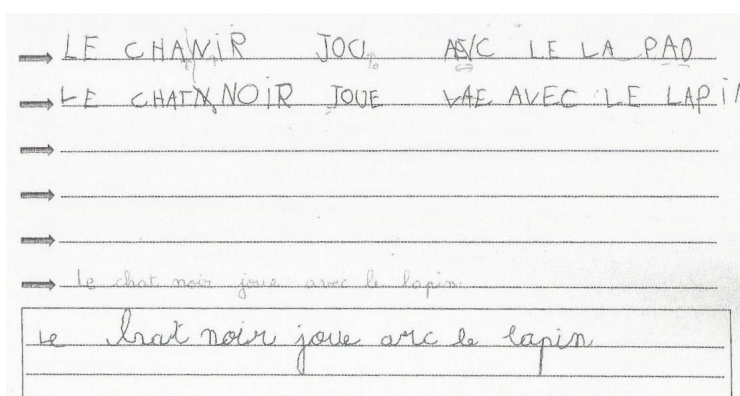 LE CHANIR JOU AVC LE LA PAO
LE CHAT NOIR JOUE VAE AVEC LE LAPIN
le chat noir joue avec le lapin.
Le hat noir joue avc le lapin